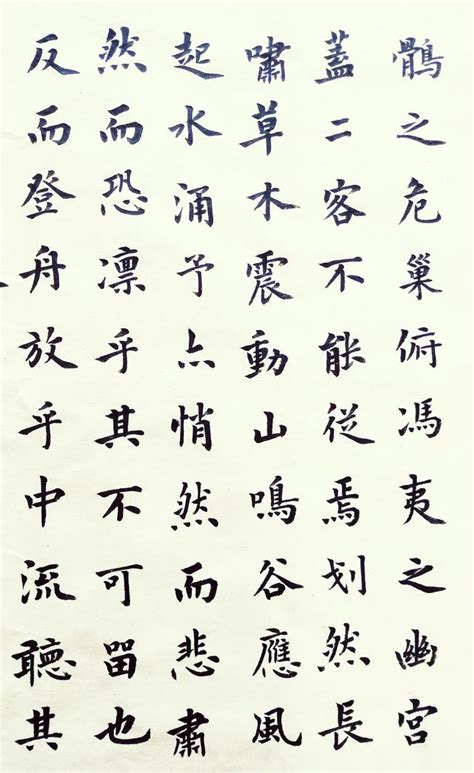 鶻之危巢俯馮夷之幽宮
蓋二客不能從焉划然長
嘯草木震動山鳴谷應風
起水涌予亦悄然而悲肅
然而恐凛乎其不可留也
反而登舟放乎中流聽其